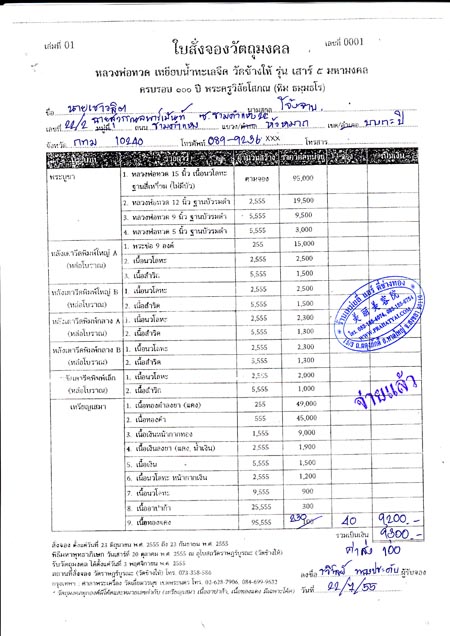 เล่มที่ 01
ใบสั่งจองวัตถุมงคล
เลขที่ 0001
หลวงพ่อทวด เหยียบน้ำทะเลจืด วัดช้างให้ รุ่น เสาร์ ๕ มหามงคล
ครบรอบ ๑๐๐ ปี พระครูวิสัยโสภณ (ทิม ธมฺมธโร)
ชื่อ
นามสกุล
เลขที่ 22/2 หมู่ที่ ถนน รามคำแหง แขวง/ตำบล หัวหมาก เขต/อำเภอ บางกะปิ
จังหวัด กทม 10240 โทรศัพท์ 089-9236 XXX โทรสาร
พระบูชา 1. หลวงพ่อทวด 15 นิ้ว เนื้อนวโลหะ ตามจอง 95,000
ฐานสี่เหลี่ยม (ไม่มีบัว)
2. หลวงพ่อทวด 12 นิ้ว ฐานบัวรมดำ 2,555 19,500
3. หลวงพ่อทวด 9 นิ้ว ฐานบัวรมดำ 5,555 9,500
4. หลวงพ่อทวด 5 นิ้ว ฐานบัวรมดำ 5,555 3,000
หลังเตารีดพิมพ์ใหญ่ A 1. พระช่อ 9 องค์ 255 15,000
(หล่อโบราณ) 2. เนื้อนวโลหะ 2,555 2,500
3. เนื้อสำริด 5,555 1,500
หลังเตารีดพิมพ์ใหญ่ B 1. เนื้อนวโลหะ 2,555 2,500
(หล่อโบราณ) 2. เนื้อสำริด 5,555 1,500
หลังเตารีดพิมพ์กลาง A 1. เนื้อนวโลหะ 2,555 2,300
(หล่อโบราณ) 2. เนื้อสำริด 5,555 1,300
หลังเตารีดพิมพ์กลาง B 1. เนื้อนวโลหะ 2,555 2,300
(หล่อโบราณ) 2. เนื้อสำริด 5,555 1,300
หลังเตารีดพิมพ์เล็ก 1. เนื้อนวโลหะ 2,555 2,000
(หล่อโบราณ) 2. เนื้อสำริด 5,555 1,000
เหรียญเสมา 1. เนื้อทองคำลงยา (แดง) 255 49,000
2. เนื้อทองคำ 555 45,000
3. เนื้อเงินหน้ากากทอง 1,555 9,000
4. เนื้อเงินลงยา (แดง, น้ำเงิน) 2,555 1,900
5. เนื้อเงิน 5,555 1,500
6. เนื้อนวโลหะ หน้ากากเงิน 2,555 1,200
7. เนื้อนวโลหะ 9,555 900
8. เนื้ออาปาก้า 25,555 300
9. เนื้อทองแดง 95,555 230 100 40 9200.-
รวมเป็นเงิน 9300.-
ค่าส่ง 100
จ่ายแล้ว
สั่งจอง ตั้งแต่วันที่ 23 มิถุนายน พ.ศ. 2555 ถึง 23 กันยายน พ.ศ. 2555
พิธีมหาพุทธาภิเษก วันเสาร์ที่ 20 ตุลาคม พ.ศ. 2555 ณ อุโบสถวัดราษฎร์บูรณะ (วัดช้างให้)
รับวัตถุมงคลได้ตั้งแต่วันที่ 3 พฤศจิกายน พ.ศ. 2555
สถานที่สั่งจอง วัดราษฎร์บูรณะ (วัดช้างให้) โทร. 073-358-586
ลงชื่อ ผู้รับจอง
วันที่ 22/7/55